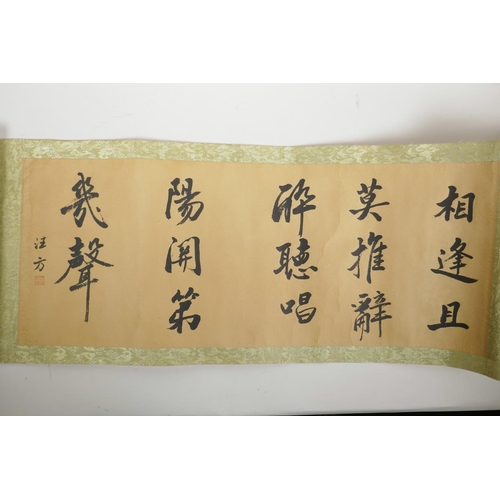 相逢且
莫推辭
醉聽唱
陽開第
幾聲
汪方